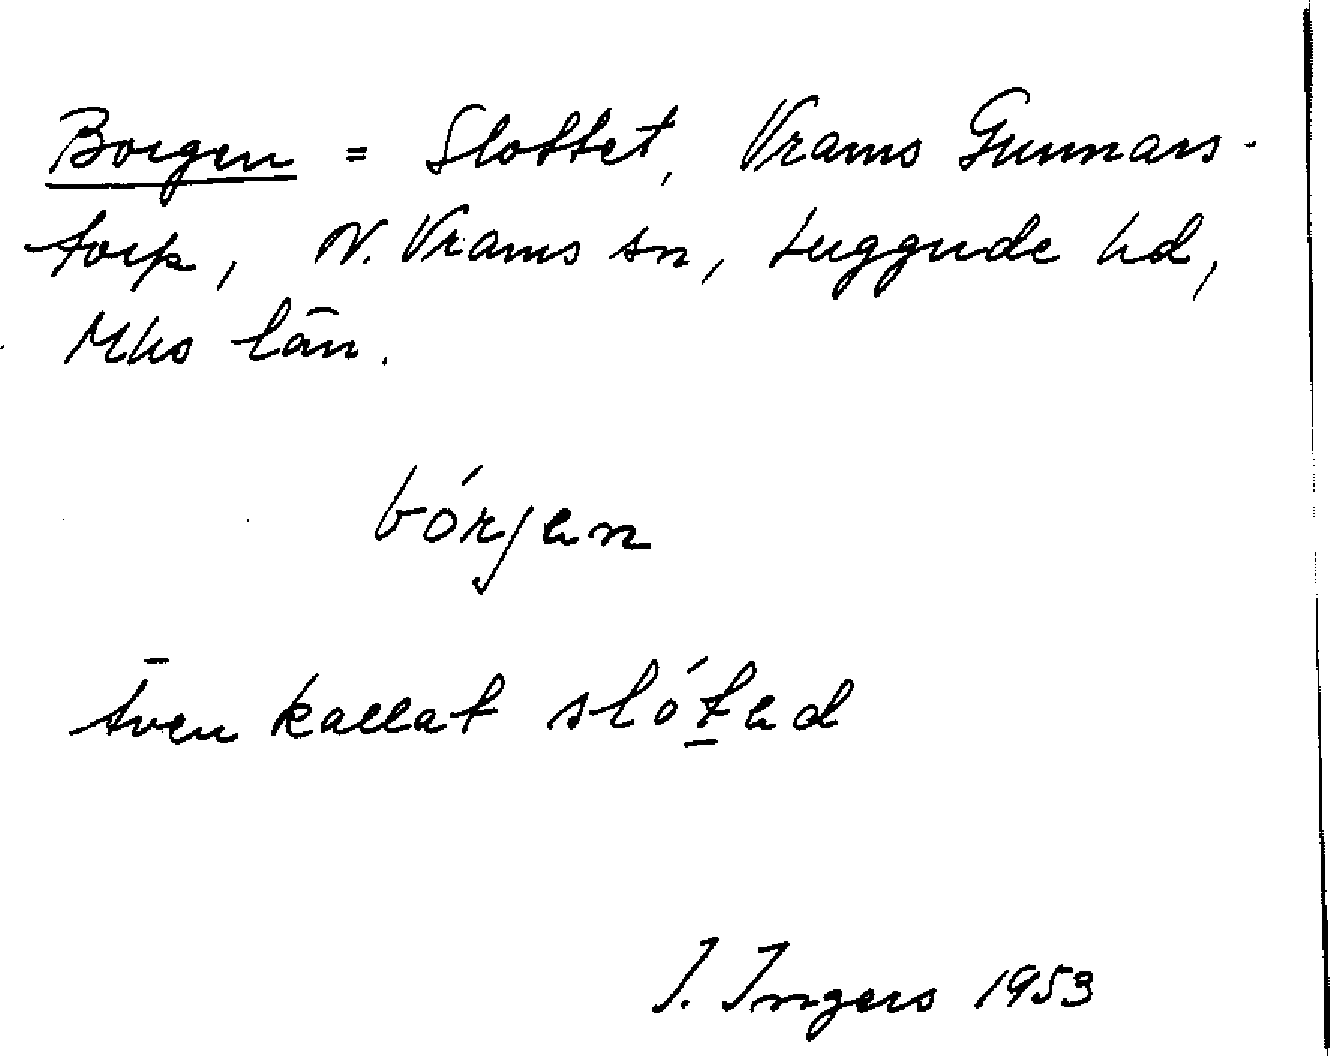 Borgen = Slottet, Vrams Gunnars-
torp, N. Vrams sn, Luggude hd,
Mhs län.
bórjen
Även kallat slót̲ed
I. Ingers 1953